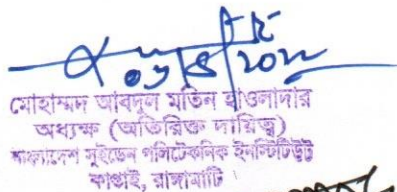 ০৬/৪/২০২২
মোহাম্মদ আবদুল মতিন হাওলাদার
অধ্যক্ষ (অতিরিক্ত দায়িত্ব)
বাংলাদেশ সুইডেন পলিটেকনিক ইনস্টিটিউট
কাপ্তাই, রাঙ্গামাটি